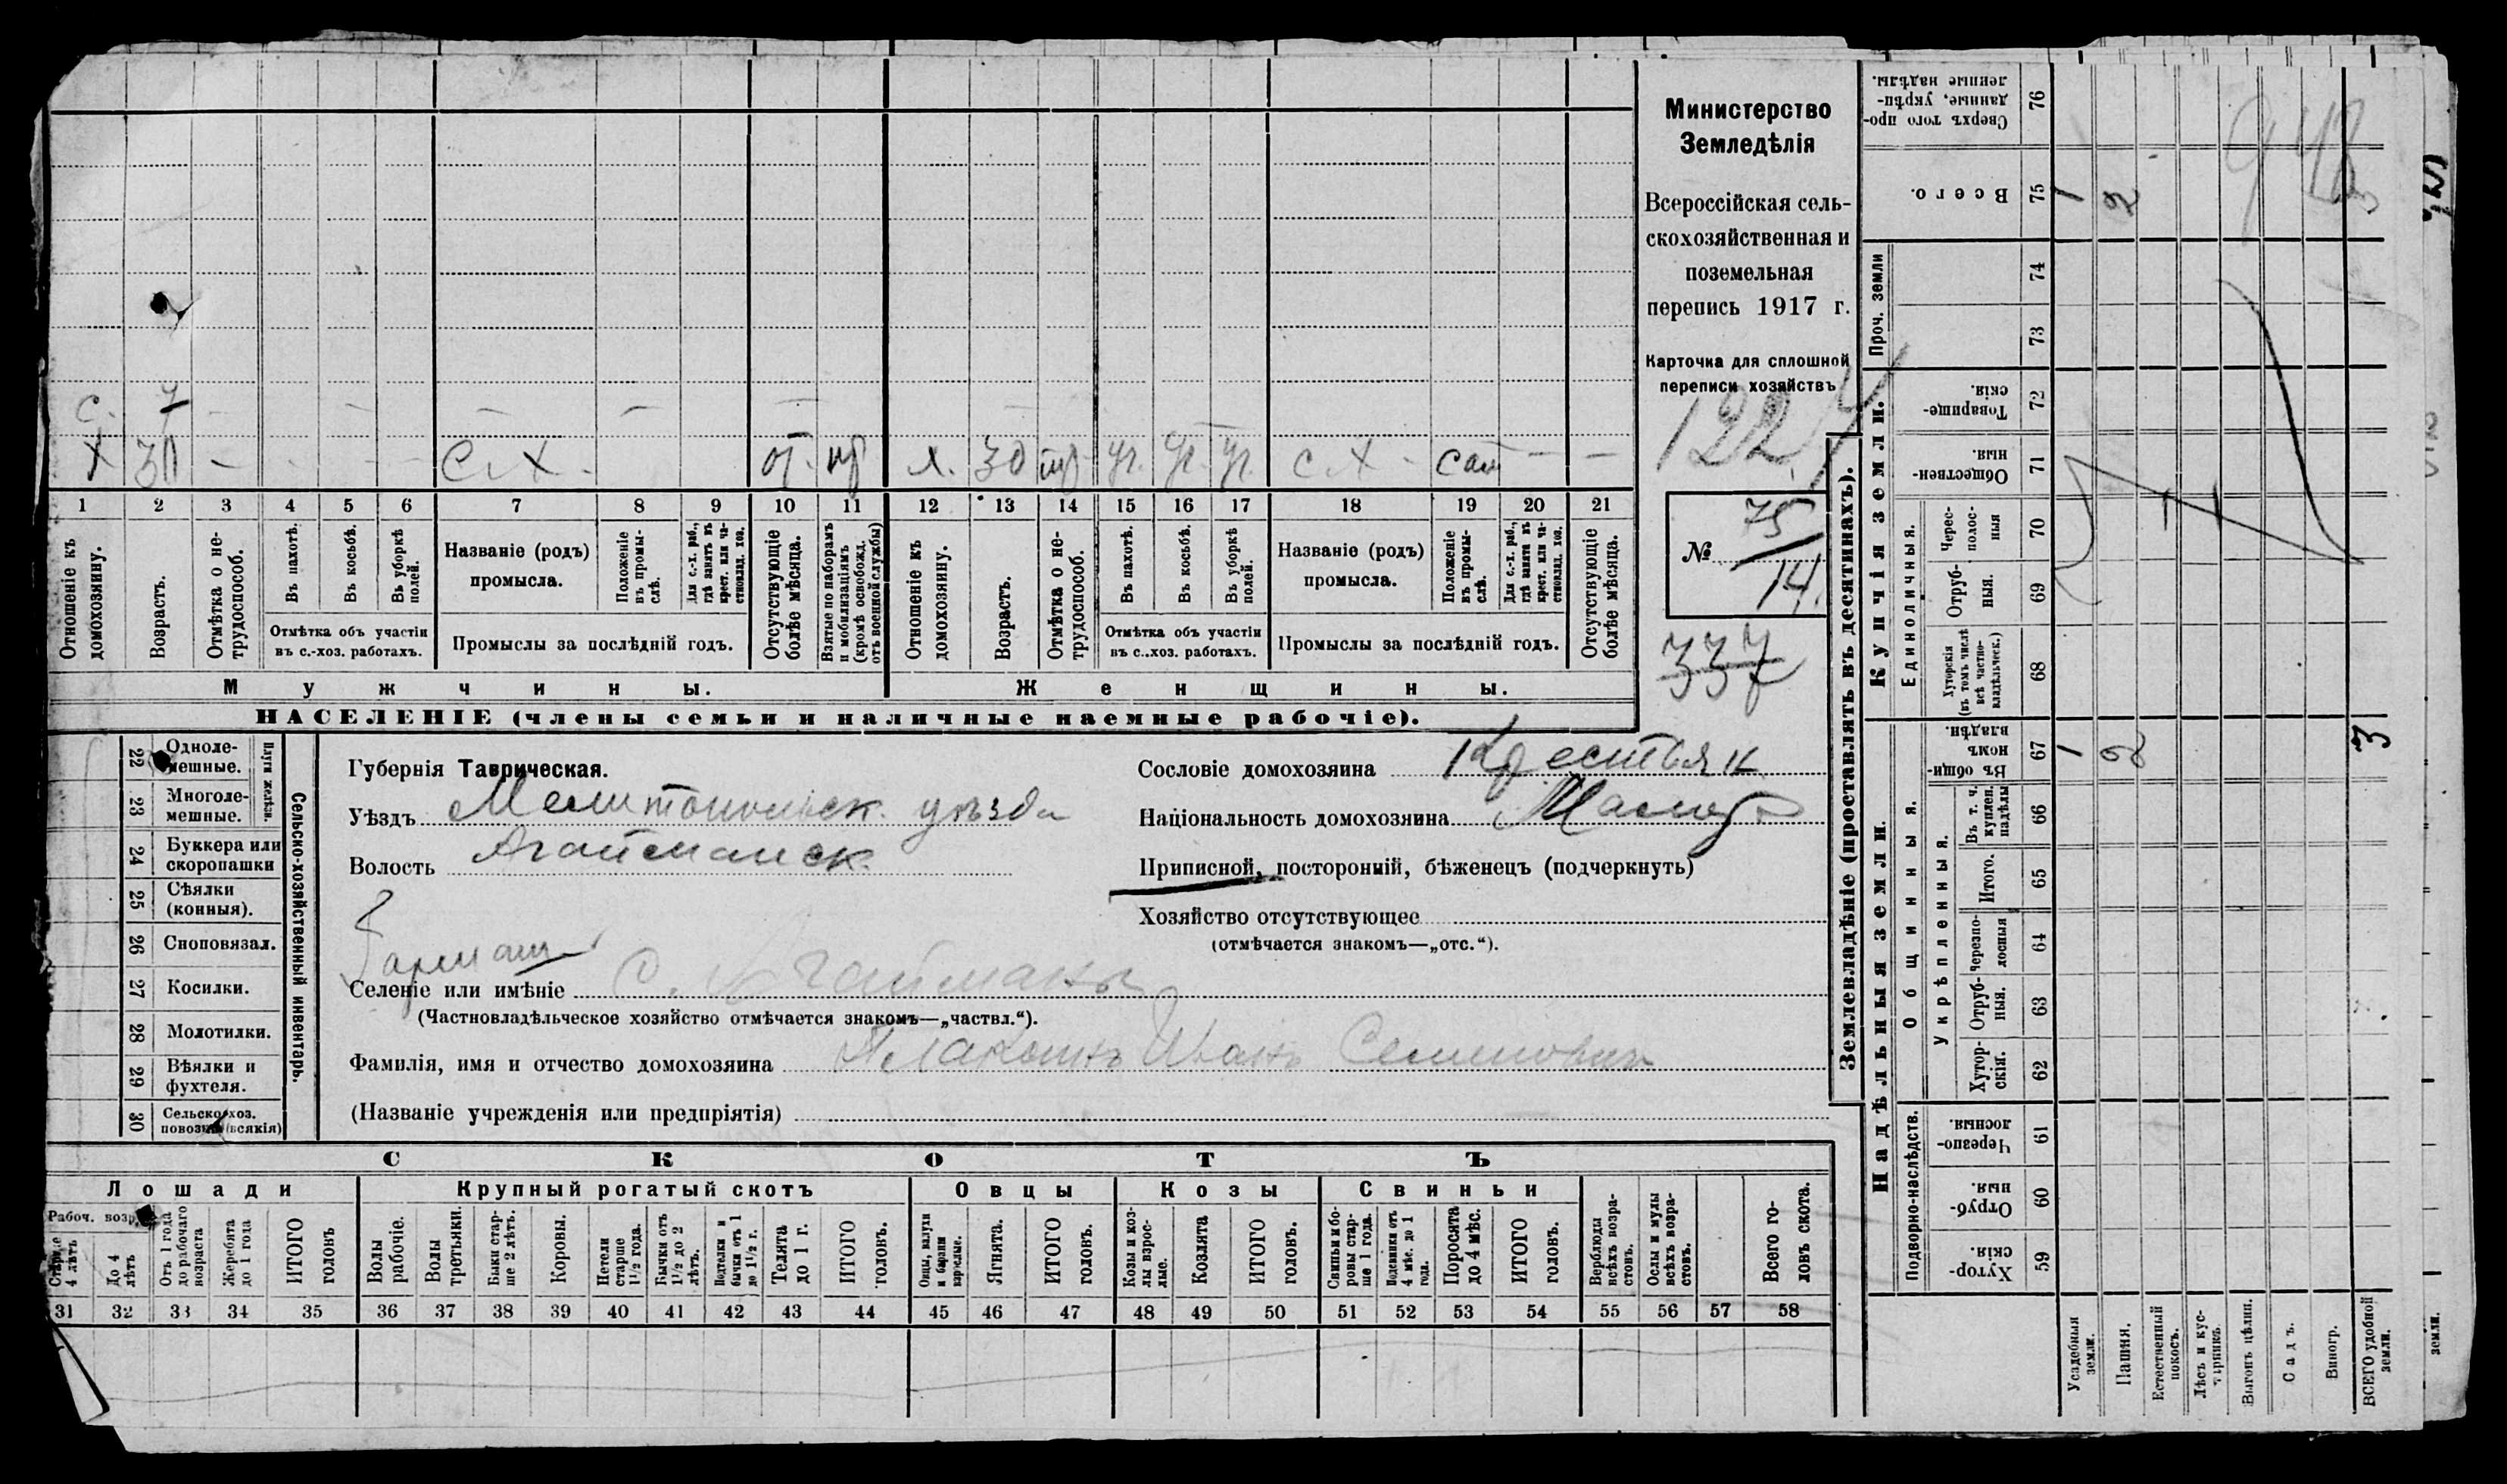 с. 7
х 30 с. х. от. нр ж. 30 пр уч. уч. уч. с. х. сам
1 2 3 4 5 6 7 8 9 10 11 12 13 14 15 16 17 18 19 20 21
Отношеніе къ домохозяину.
Возрастъ.
Отмѣтка о нетрудоспособ.
Въ пахотѣ.
Въ косьбѣ.
Въ уборкѣ полей.
Отмѣтка объ участіи
въ с.-хоз. работахъ.
Названіе (родъ)
промысла.
Положеніе въ промыслѣ.
Для с.-х. раб., гдѣ занятъ въ крест. или частновлад. хоз.
Промыслы за послѣдній годъ.
Отсутствующіе болѣе мѣсяца.
Взятые по наборамъ и мобилизаціямъ (кромѣ освобожд. отъ военной службы)
Отношеніе къ домохозяину.
Возрастъ.
Отмѣтка о нетрудоспособ.
Въ пахотѣ.
Въ косьбѣ.
Въ уборкѣ полей.
Отмѣтка объ участіи
въ с..хоз. работахъ.
Названіе (родъ)
промысла.
Положеніе въ промыслѣ.
Для с.-х. раб., гдѣ заняты въ крест. или частновлад. хоз.
Промыслы за послѣдній годъ.
Отсутствующіе болѣе мѣсяца.
Мужчины.
Женщины.
НАСЕЛЕНІЕ (члены семьи и наличные наемные рабочіе).
Министерство
Земледѣлія
Всероссійская сель-
скохозяйственная и
поземельная
перепись 1917 г.
Карточка для сплошной
переписи хозяйствъ
122
№ 75
14.
337
Сельско-хозяйственный инвентарь.
Плуги желѣзн.
22 Одноле-
мешные.
23 Многоле-
мешные.
24 Буккера или
скоропашки
25 Сѣялки
(конныя).
26 Сноповязал.
27 Косилки.
28 Молотилки.
29 Вѣялки и
фухтеля.
30 Сельско-хоз.
повозки (всякія)
Губернія Таврическая.
Уѣздъ Мелитопольск. уѣзда
Волость Агайманск.
Селеніе или имѣніе с. Агайманъ
(Частновладѣльческое хозяйство отмѣчается знакомъ—„частвл.“).
Фамилія, имя и отчество домохозяина Плаксинъ Иванъ Семеновичъ
(Названіе учрежденія или предпріятія)
Сословіе домохозяина Крестьян.
Національность домохозяина Малор
Приписной, посторонній, бѣженецъ (подчеркнуть)
Хозяйство отсутствующее
(отмѣчается знакомъ—„отс.“).
СКОТЪ
Лошади
Крупный рогатый скотъ
Овцы
Козы
Свиньи
Рабоч. возр.
Старше 4 лѣтъ
До 4 лѣтъ
Отъ 1 года до рабочаго возраста
Жеребята до 1 года
ИТОГО головъ
Волы рабочіе.
Волы третьяки.
Быки старше 2 лѣтъ.
Коровы.
Нетели старше 1½ года.
Бычки отъ 1½ до 2 лѣтъ.
Подтелки и бычки отъ 1 до 1½ г.
Телята до 1 г.
ИТОГО головъ.
Овцы, валухи и бараны взрослые.
Ягнята.
ИТОГО головъ.
Козы и козлы взрослые.
Козлята
ИТОГО головъ.
Свиньи и боровы старше 1 года.
Подсвинки отъ 4 мѣс. до 1 года.
Поросята до 4 мѣс.
ИТОГО головъ.
Верблюды всѣхъ возрастовъ.
Ослы и мулы всѣхъ возрастовъ.
Всего головъ скота.
31 32 33 34 35 36 37 38 39 40 41 42 43 44 45 46 47 48 49 50 51 52 53 54 55 56 57 58
Землевладѣніе (проставлять въ десятинахъ).
Купчія земли.
Надѣльныя земли.
Сверхъ того проданные, укрѣпленные надѣлы. 76
Всего. 75 1 2
Проч. земли
74
73
Товарищескія. 72
Общественныя. 71
Единоличныя.
Чересполосныя 70
Отрубныя. 69
Хуторскія (въ томъ числѣ всѣ частновладѣльческ.) 68
Общинныя.
Въ общинномъ владѣн. 67 1 2 3
Укрѣпленныя.
Въ т. ч. куплен. надѣлы 66
Итого. 65
Черезполосныя 64
Отрубныя. 63
Хуторскія. 62
Подворно-наслѣдств.
Черезполосныя. 61
Отрубныя. 60
Хуторскія. 59
Усадебныя земли.
Пашня.
Естественный покосъ.
Лѣсъ и кустарникъ.
Выгонъ цѣлин.
Садъ.
Виногр.
ВСЕГО удобной земли.
земли.